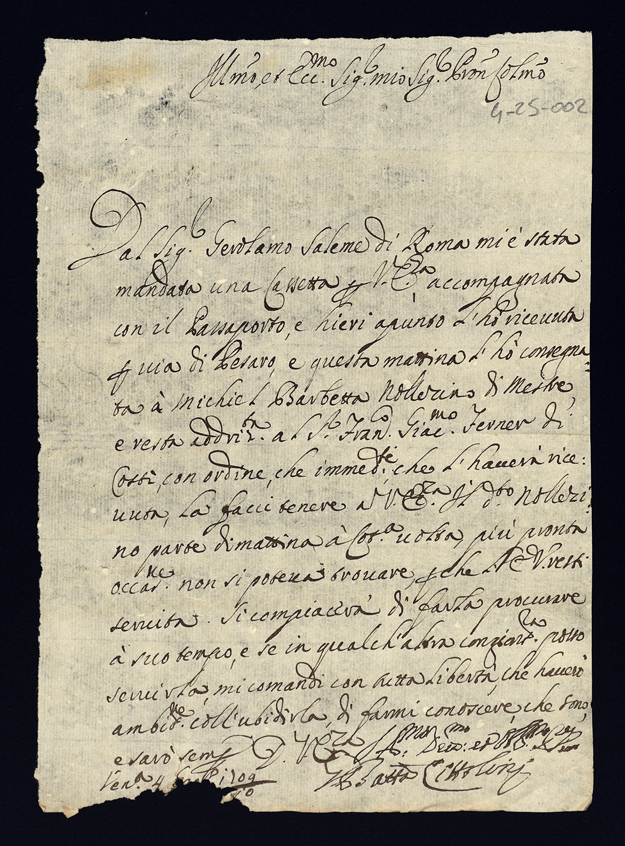 Illmo, et Ecc.mo Sig.r mio Sig.r Pron Colmo
4-25-002
Dal Sig.r Gerolamo Saleme di Roma mi è stata
mandata una Cassetta p V. Ecza accompagnata
con il Passaporto, e hieri apunto l'hò ricevuta
p via di Pesaro, e questa mattina l'hò consegna:
ta à Michiel Barbetta Nollezino di Mestre,
e resta addri.ta al S.r Fran.co Giac.mo Ferner di
Costì, con ordine, che immed.te che l'haverà rice:
vuta, la facci tenere a V. Ecza. Il d.to Nollezi:
no parte dimattina à Cot.a volta, più pronta
occas.ne non si poteva trovare pche V. E. resti
servita. Si compiacerà di farla procurare
à suo tempo, e se in qualch'altra congiont.ra posso
servirla, mi comandi con tutta libertà, che haverò
ambit.ne coll'ubidirla, di farmi conoscere, che sono,
e sarò semp D. V. Ecza
Ven.a 4 1709
Batta